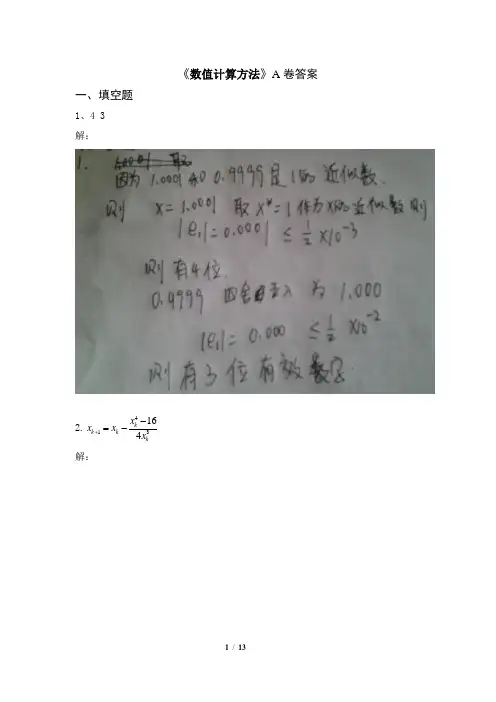 《数值计算方法》A 卷答案
一、填空题
1、4 3
解：
1.
因为 1.0001 和 0.9999 是 1 的 近似数.
则 x=1.0001 取 x*=1 作为 x的近似数 则
|e₁|=0.0001 ≤ ½×10⁻³
则有4位.
0.9999 四舍五入 为 1.000
|e₁|= 0.000 ≤ ½ ×10⁻²
则有3位有效数字
2. xₖ₊₁ = xₖ − (xₖ⁴−16)/(4xₖ³)
解：
1 / 13